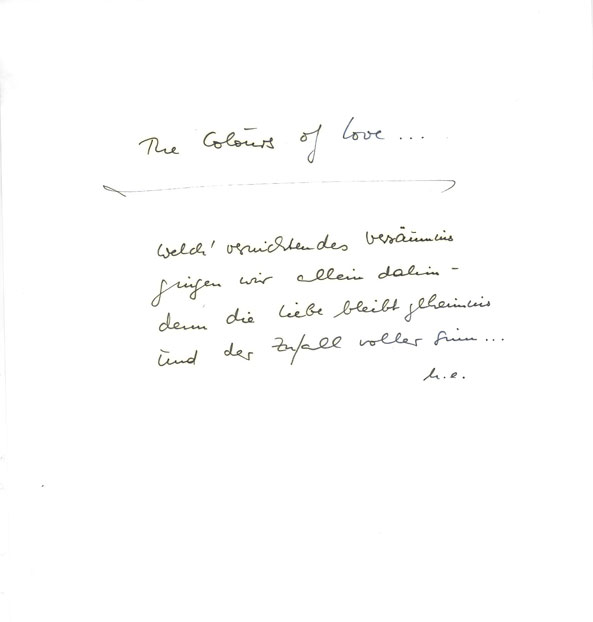 The Colours of love ...
welch' vernichtendes versäumnis
gingen wir allein dahin –
denn die liebe bleibt geheimnis
und der Zufall voller sinn ...
h.e.